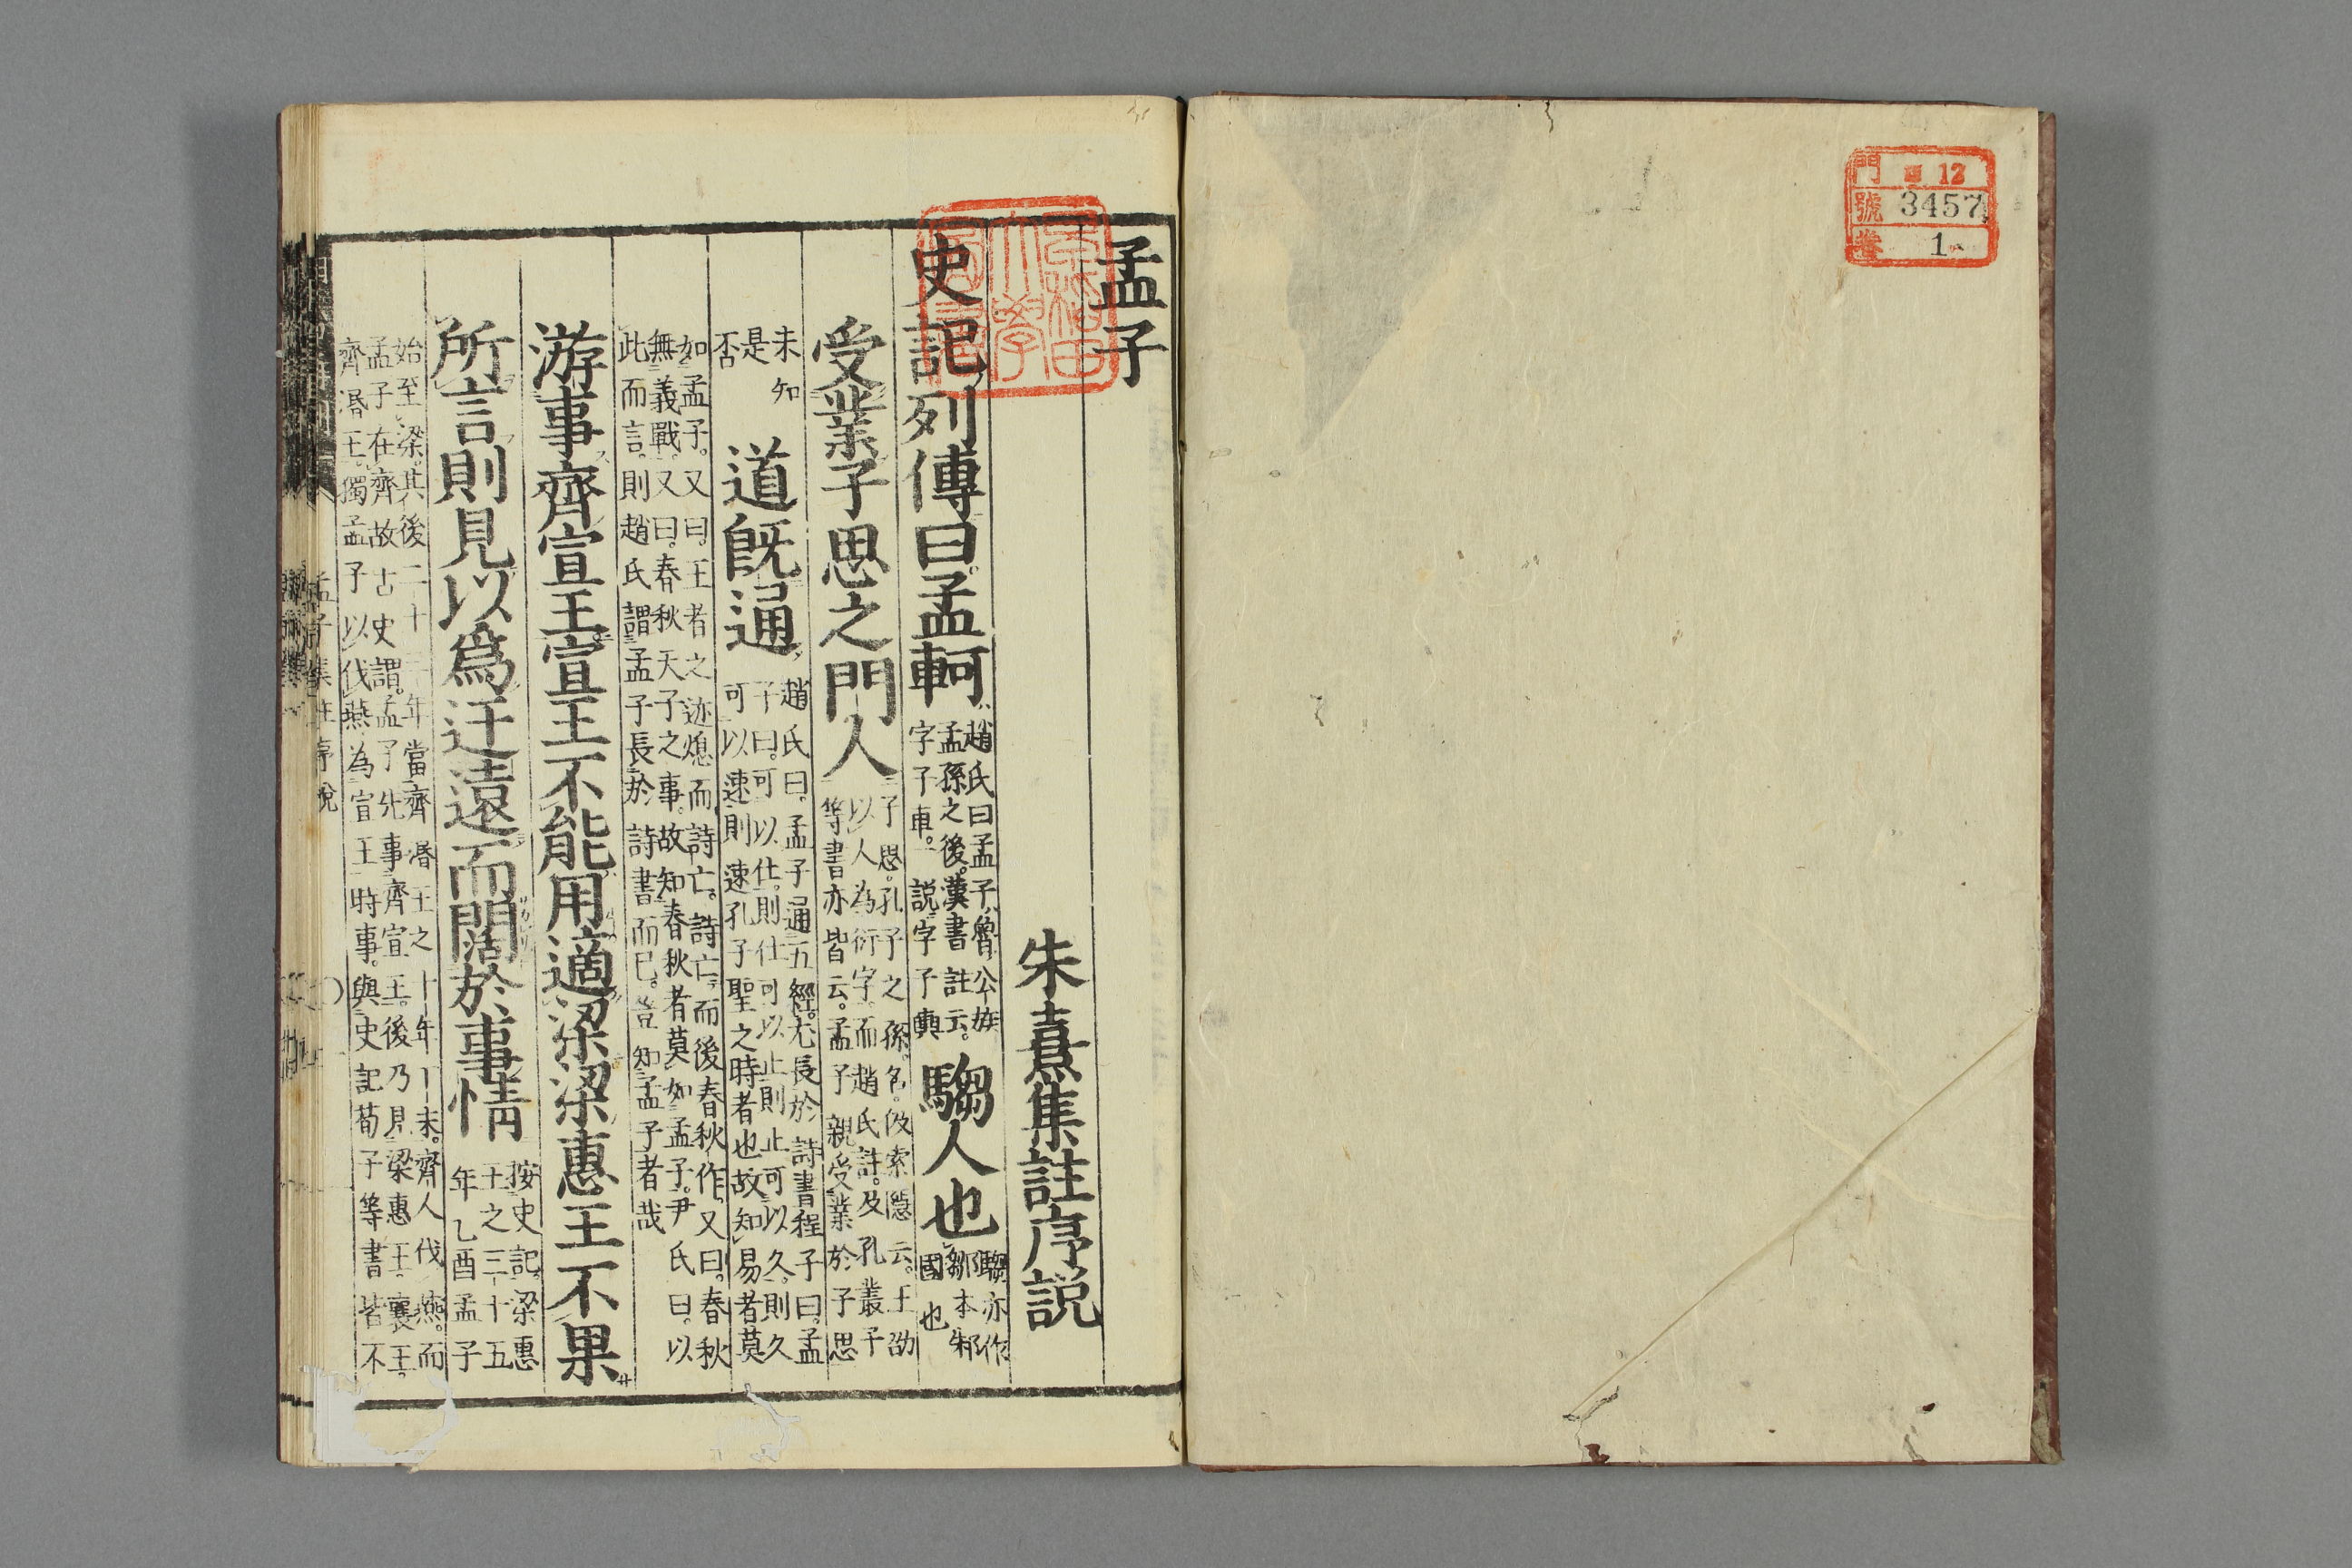 門 12
號 3457
卷 1
孟子
朱熹集註序説
史記列傳曰孟軻
趙氏曰孟子魯公族
孟孫之後漢書註云
字子車一説字子輿
騶人也
騶亦作
鄒本邾
國也
受業子思之門人
子思孔子之孫名伋索隱云王劭
以人為衍字而趙氏註及孔叢子
等書亦皆云孟子親受業於子思
未知
是
否
道既通
趙氏曰孟子通五經尤長於詩書程子曰孟
子曰可以仕則仕可以止則止可以久則久
可以速則速孔子聖之時者也故知易者莫
如孟子又曰王者之迹熄而詩亡詩亡而後春秋作又曰春秋
無義戰又曰春秋天子之事故知春秋者莫如孟子尹氏曰以
此而言則趙氏謂孟子長於詩書而已豈知孟子者哉
游事齊宣王宣王不能用適梁梁惠王不果
所言則見以為迂遠而闊於事情
按史記梁惠
王之三十五
年乙酉孟子
始至梁其後二十三年當齊湣王之十年丁未齊人伐燕而
孟子在齊故古史謂孟子先事齊宣王後乃見梁惠王襄王
齊湣王獨孟子以伐燕為宣王時事與史記荀子等書皆不
孟子集註序說